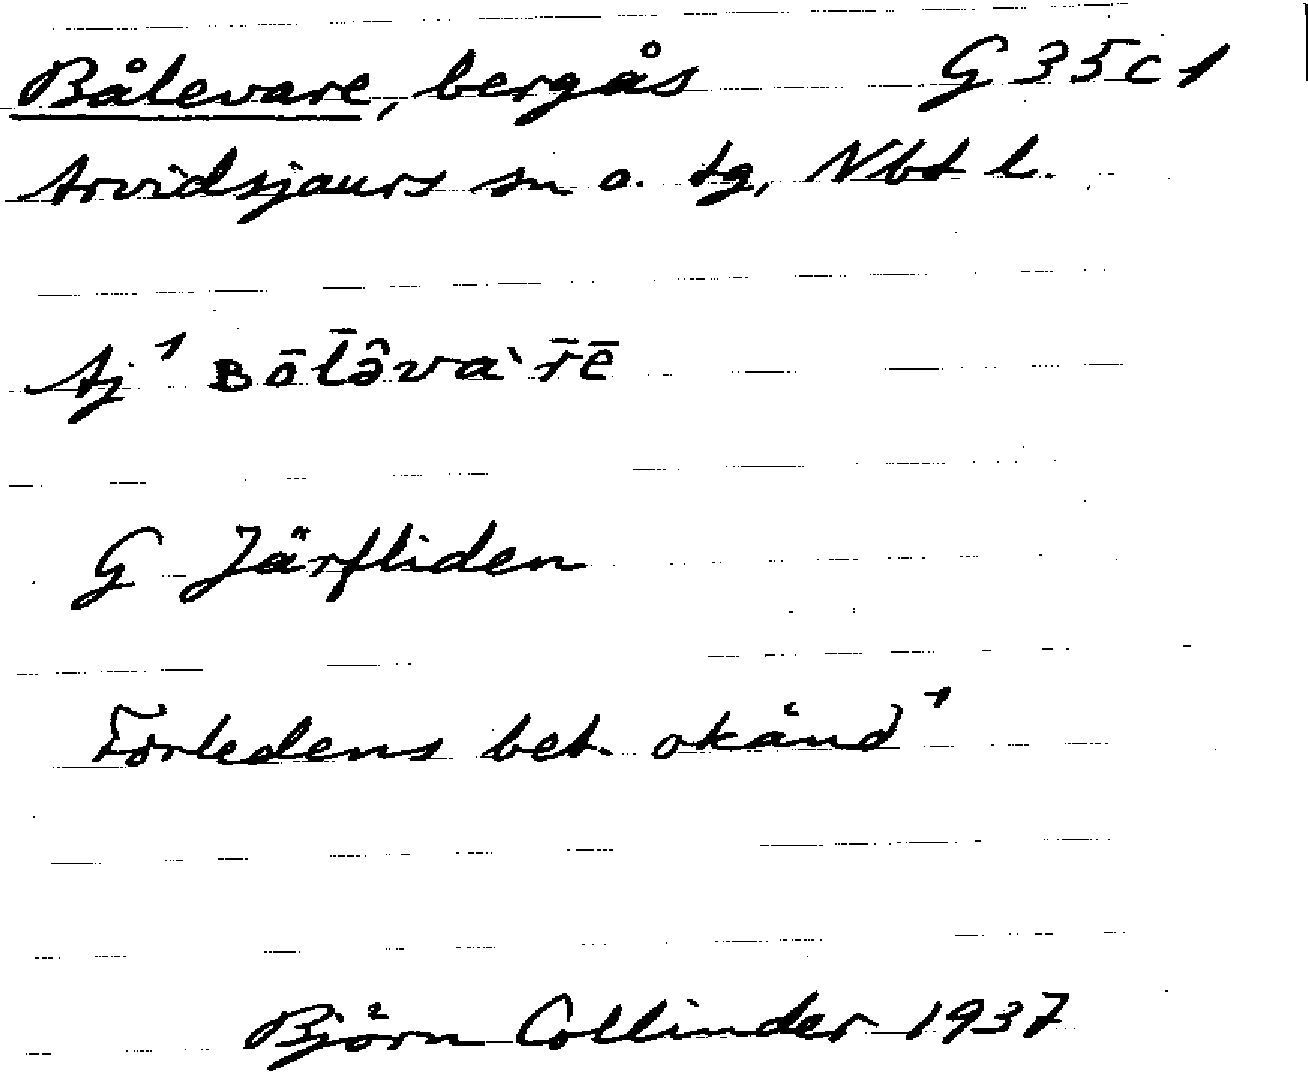 Bålevare, bergås G 35 c 1
Arvidsjaurs sn o. tg, Nbt l.
Aj ¹ ʙōl̄ə̑vaˋr̄ē
G Järfliden
Förledens bet. okänd ¹
Björn Collinder 1937